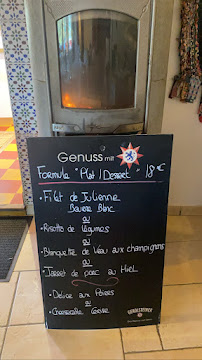 Genuss mit
Formula "Plat / Dessert" 18€
• Filet de Julienne
Beurre Blanc
ou
• Risotto de légumes
ou
• Blanquette de Veau aux champignons
ou
• Jarret de porc au Miel
• Délice aux Poires
ou